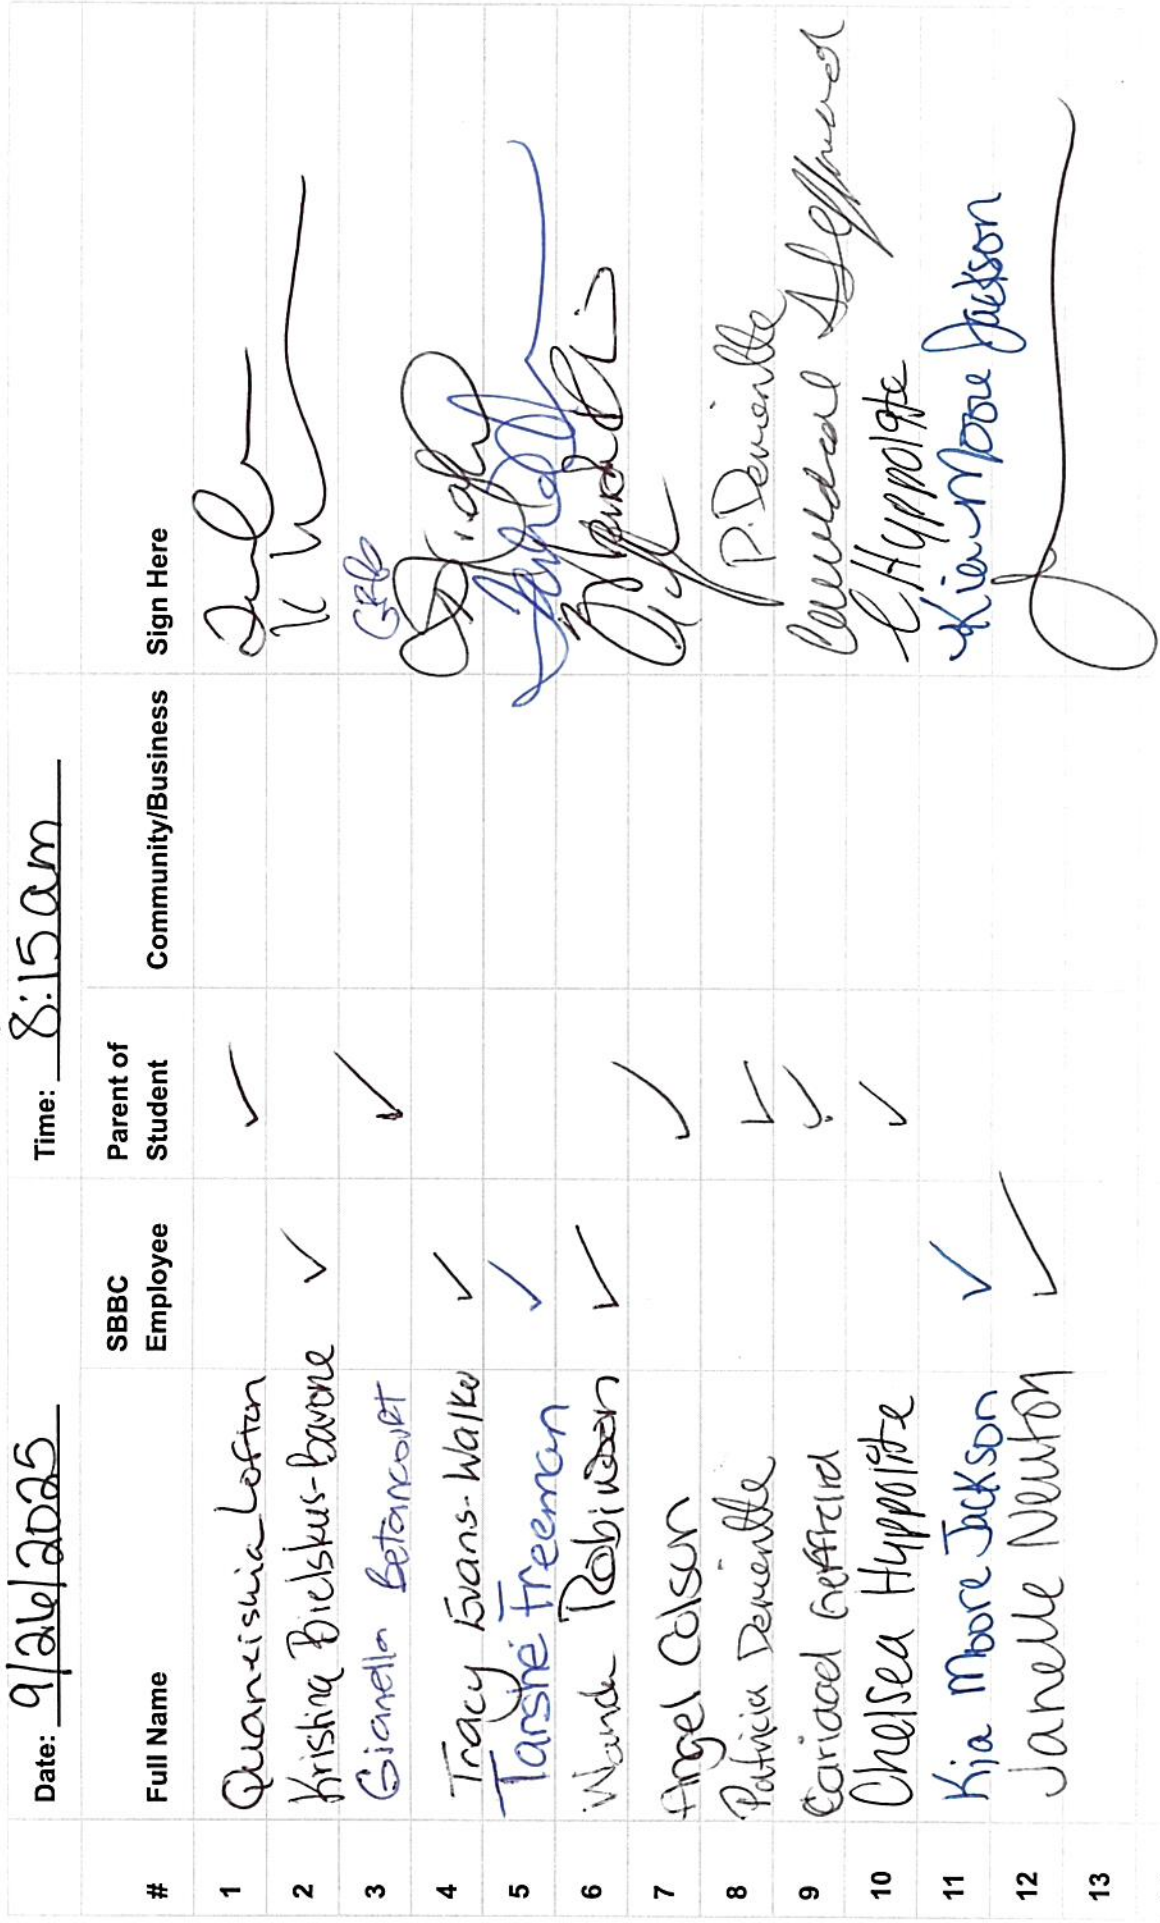 Date: 9/26/2025 Time: 8:15 am
# Full Name SBBC Employee Parent of Student Community/Business Sign Here
1 Quaneishia Lofton ✓
2 Kristina Bielskus-Barone ✓
3 Gianella Betancourt ✓ GFB
4 Tracy Evans-Walker ✓
5 Tarshe Freeman ✓
6 Wanda Robinson ✓
7 Angel Colson ✓
8 Patricia Devienlle ✓ P. Devienlle
9 Caridad Geffrard ✓
10 Chelsea Hyppolite ✓ CHyppolite
11 Kia Moore Jackson ✓ Kia Moore Jackson
12 Janelle Newton ✓
13